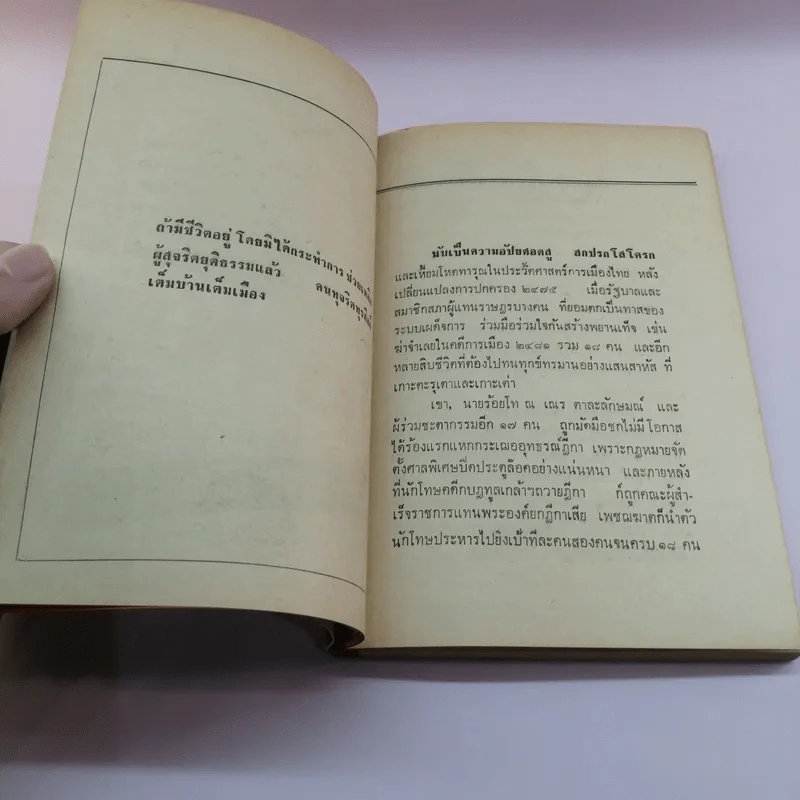 ถ้ามีชีวิตอยู่ โดยมิได้กระทำการ
ผู้สุจริตยุติธรรมแล้ว คนทุจริต
เต็มบ้านเต็มเมือง
นับเป็นความอัปยศอดสู สกปรกโสโครก
และเหี้ยมโหดทารุณในประวัติศาสตร์การเมืองไทย หลัง
เปลี่ยนแปลงการปกครอง ๒๔๗๕ เมื่อรัฐบาลและ
สมาชิกสภาผู้แทนราษฎรบางคน ที่ยอมตกเป็นทาสของ
ระบบเผด็จการ ร่วมมือร่วมใจกันสร้างพยานเท็จ เข่น
ฆ่าจำเลยในคดีการเมือง ๒๔๘๑ รวม ๑๘ คน และอีก
หลายสิบชีวิตที่ต้องไปทนทุกข์ทรมานอย่างแสนสาหัส ที่
เกาะตะรุเตาและเกาะเต่า
เขา, นายร้อยโท ณ เณร ตาละลักษมณ์ และ
ผู้ร่วมชะตากรรมอีก ๑๗ คน ถูกมัดมือชกไม่มีโอกาส
ได้ร้องแรกแหกกระเฌออุทธรณ์ฎีกา เพราะกฎหมายจัด
ตั้งศาลพิเศษปิดประตูล๊อคอย่างแน่นหนา และภายหลัง
ที่นักโทษคดีกบฎทูลเกล้าฯถวายฎีกา ก็ถูกคณะผู้สำ-
เร็จราชการแทนพระองค์ยกฎีกาเสีย เพชฌฆาตก็นำตัว
นักโทษประหารไปยิงเป้าทีละคนสองคนจนครบ ๑๘ คน